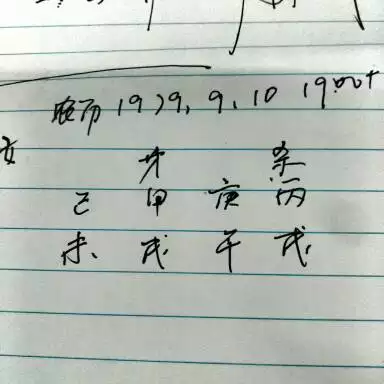 1979, 9, 10 19:00+
女 才 杀
己 甲 庚 丙
未 戌 午 戌